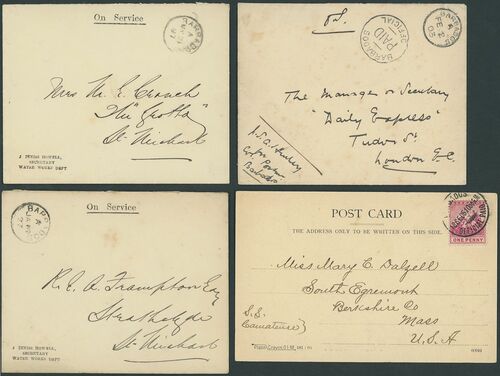 On Service
BARBADOS
Mrs M. E. Crouch
The "Grotto"
St. Michael
J DINIAS HOWELL,
SECRETARY
WATER WORKS DEPT
BARBADOS
PAID
OFFICIAL
BARBADOS
The Manager or Secretary
"Daily Express"
Tudor St
London E.C.
for
Barbados
On Service
BARBADOS
R. G. A. Frampton Esq
Strathclyde
St. Michael
J DINIAS HOWELL,
SECRETARY
WATER WORKS DEPT
POST CARD
THE ADDRESS ONLY TO BE WRITTEN ON THIS SIDE.
ONE PENNY
Miss Mary C. Dalzell
South Egremont
Berkshire Co
Mass
U.S.A
S.S.